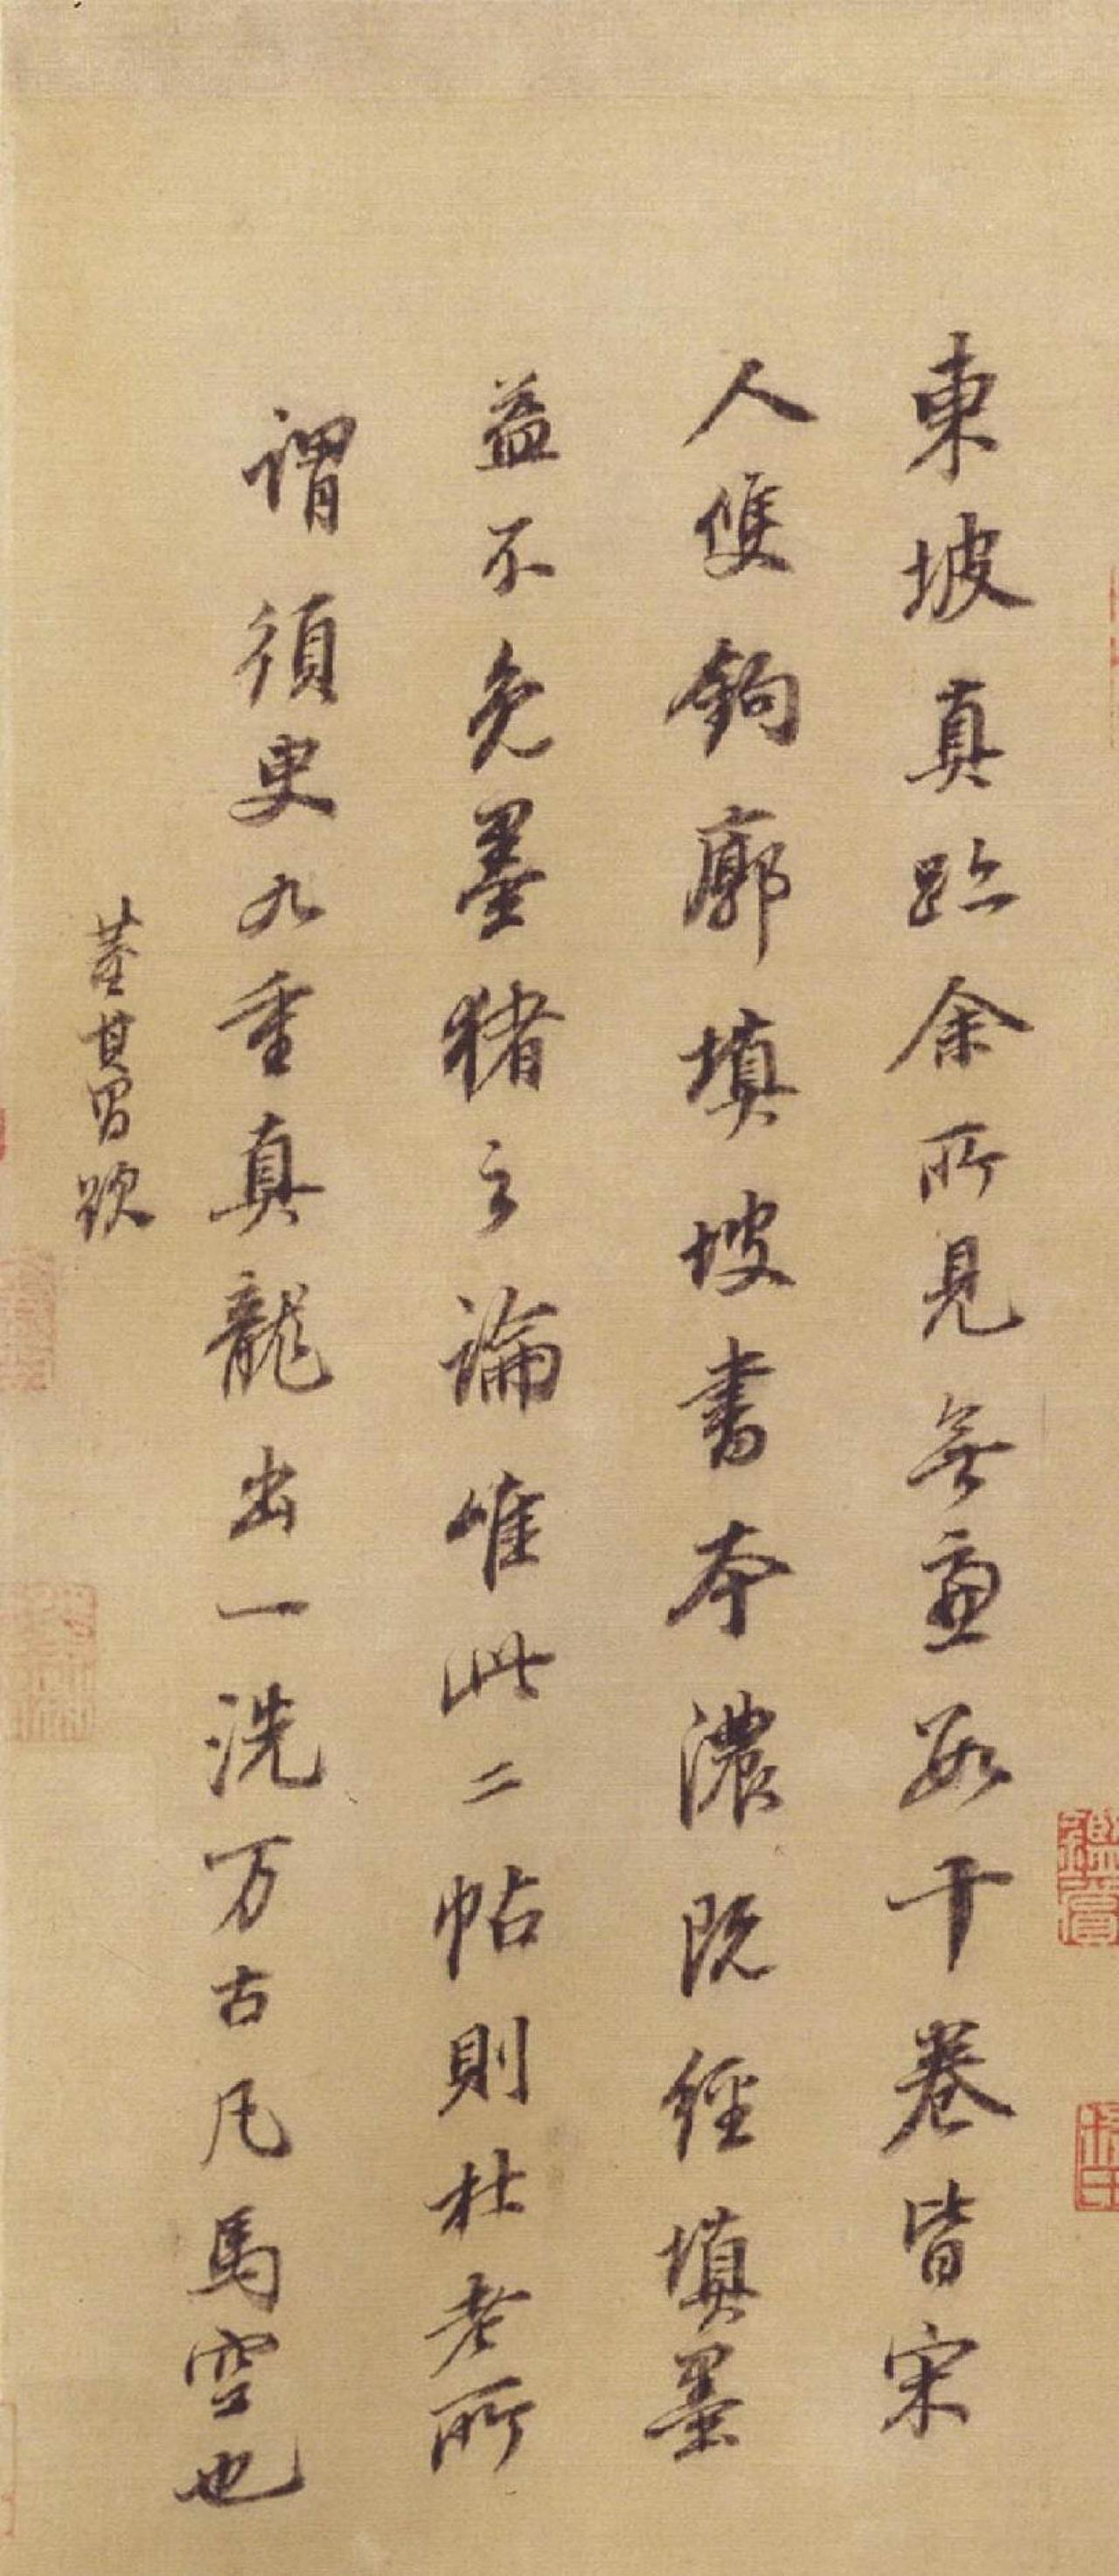 東坡真跡余所見無慮數十卷皆宋
人雙鉤廓填坡書本濃既經填墨
益不免墨猪之論唯此二帖則杜老所
謂須臾九重真龍出一洗万古凡馬空也
董其昌跋